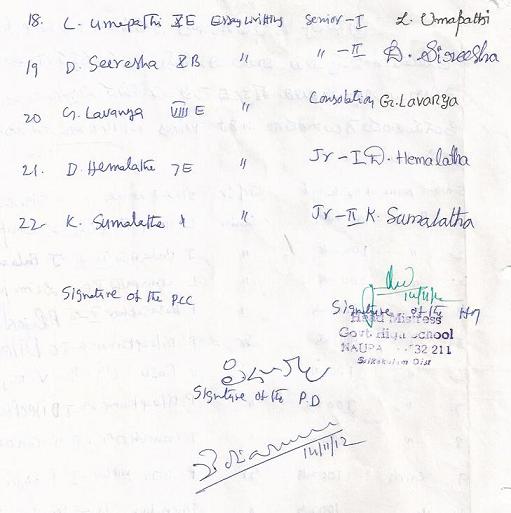 18. L. Umapathi XE Essay writting Senior-I L. Umapathi
19 D. Seeresha XB " " -II D. Sireesha
20 G. Lavanya VIII E " Consolation G. Lavanya
21. D. Hemalatha 7E " Jr-I D. Hemalatha
22 K. Sumalatha " Jr-II K. Sumalatha
14/11/12
Signature of the PCC Signature of the HM
Head Mistress
Govt High School
NAUPA 532 211
Srikakulam Dist
Signature of the P.D
14/11/12